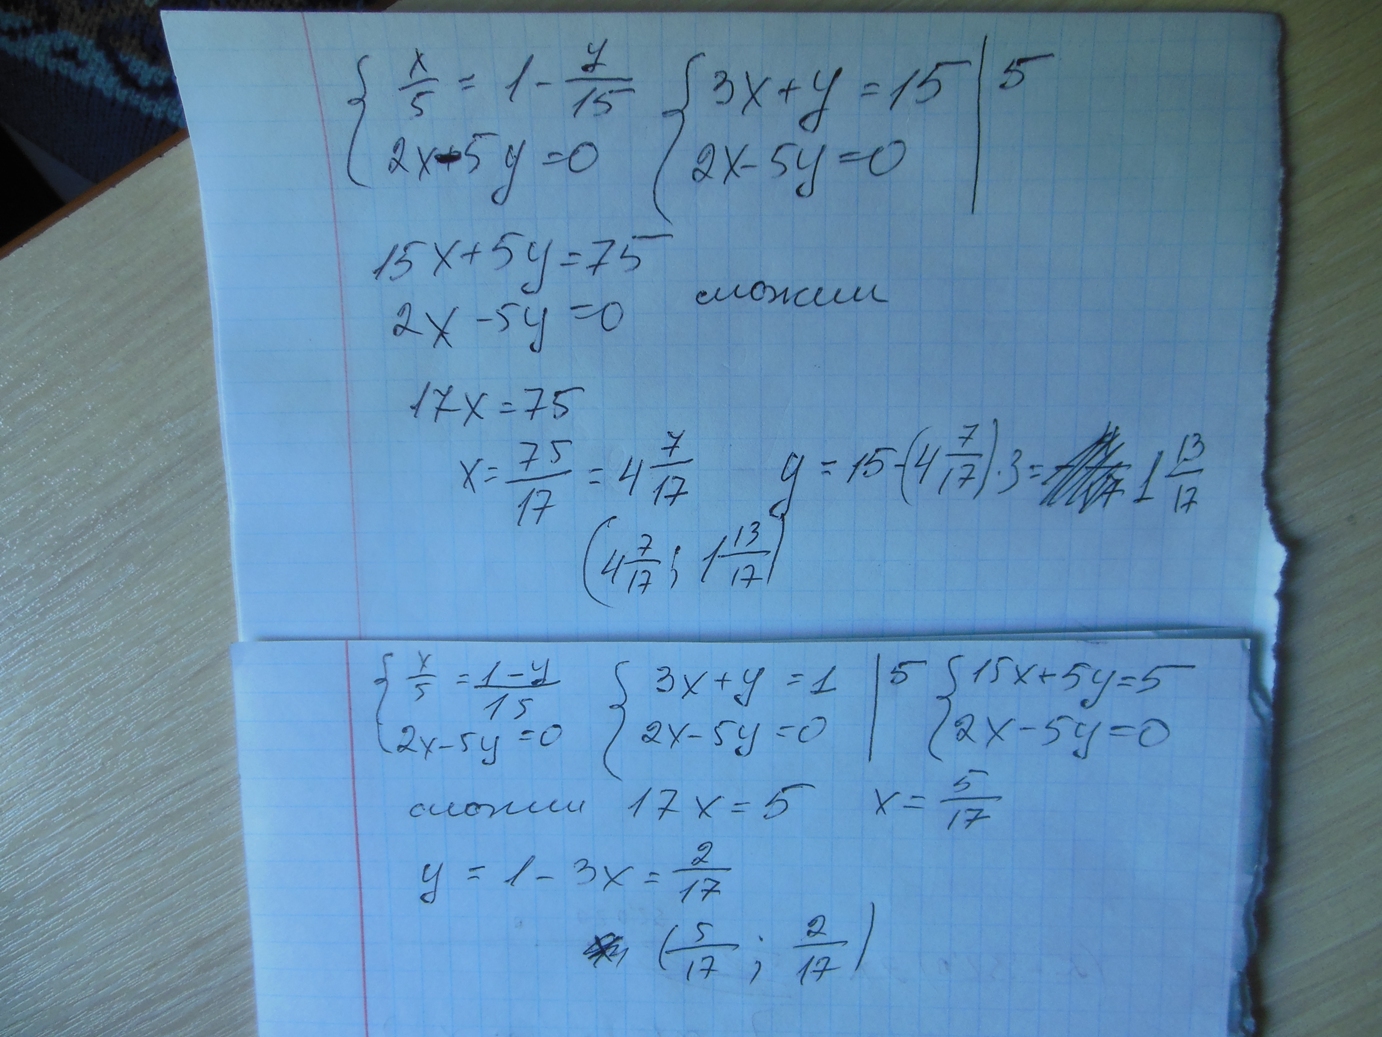 { x/5 = 1 - y/15 { 3x + y = 15 | 5
2x - 5y = 0 2x - 5y = 0
15x + 5y = 75
2x - 5y = 0 сложим
17x = 75
x = 75/17 = 4 7/17 y = 15 - (4 7/17) · 3 = 1 13/17
(4 7/17 ; 1 13/17)
{ x/5 = 1-y/15 { 3x + y = 1 | 5 { 15x + 5y = 5
2x - 5y = 0 2x - 5y = 0 2x - 5y = 0
сложим 17x = 5 x = 5/17
y = 1 - 3x = 2/17
(5/17 ; 2/17)